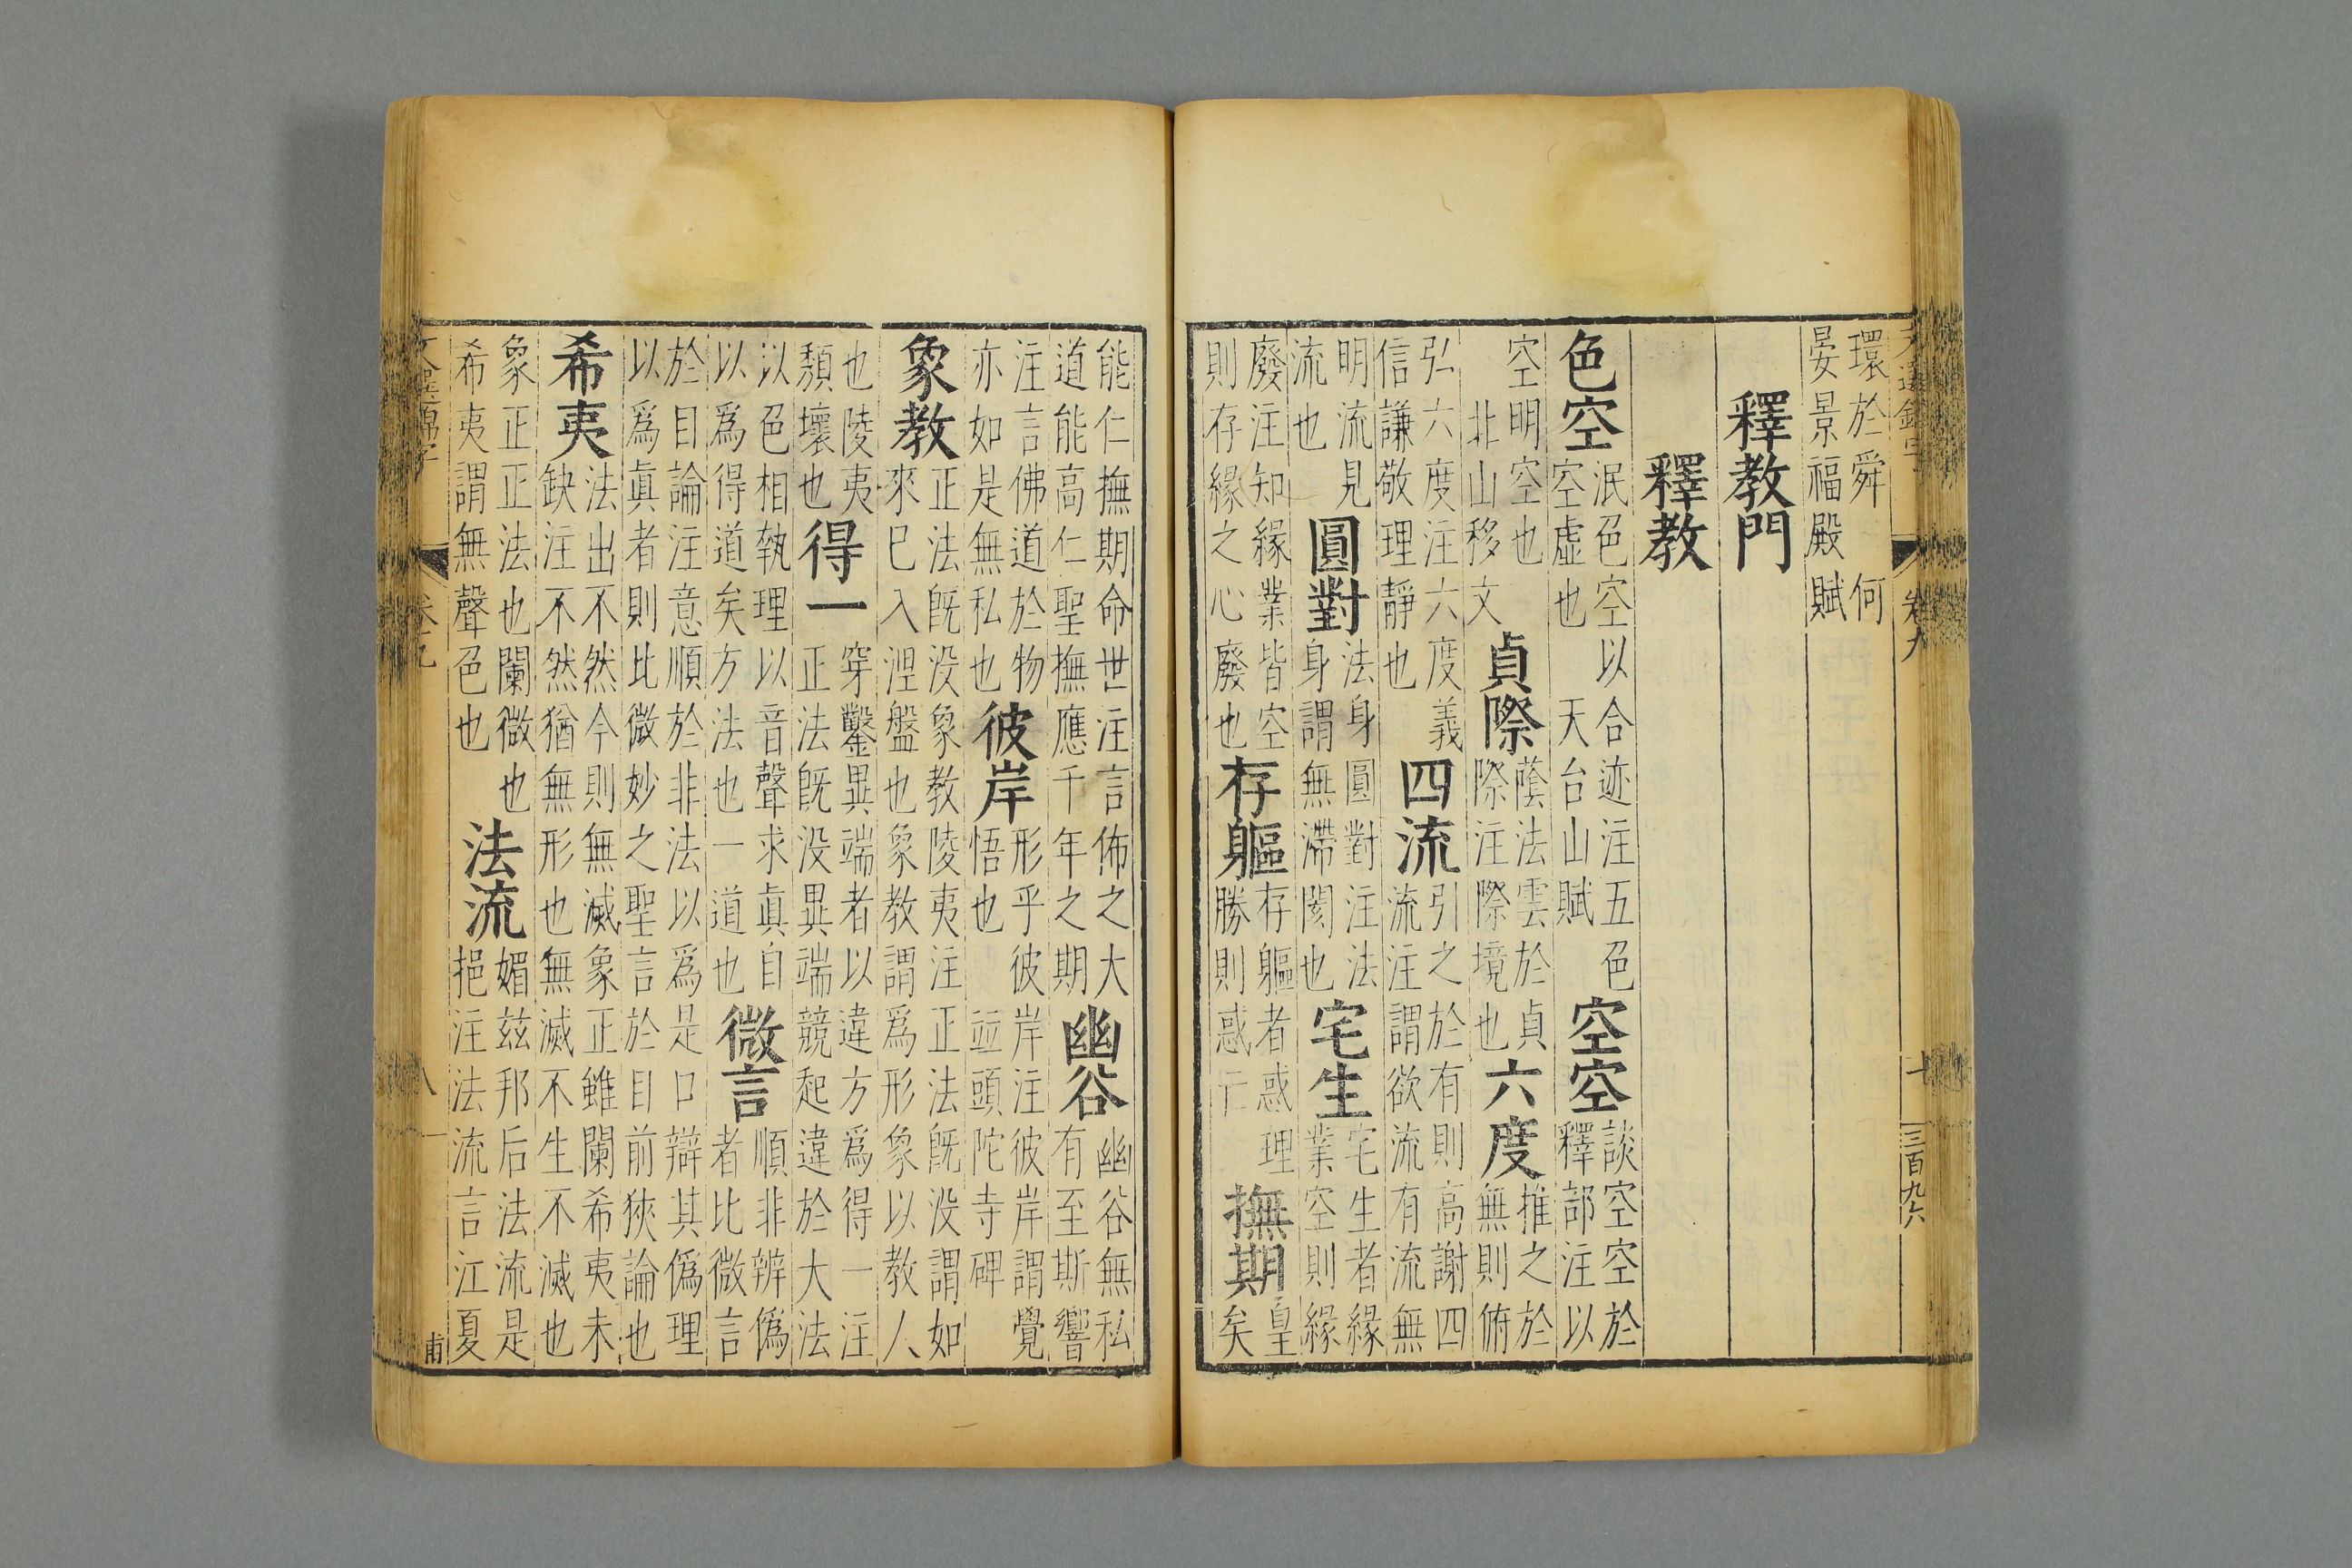 卷九 十 三百九六
環於舜 何
晏景福殿賦
釋教門
釋教
色空
泯色空以合迹注五色
空虛也 天台山賦
空空
談空空於
釋部注以
空明空也
北山移文
貞際
蔭法雲於貞
際注際境也
六度
推之於
無則俯
弘六度注六度義
信謙敬理靜也
四流
引之於有則高謝四
流注謂欲流有流無
明流見
流也
圓對
法身圓對注法
身謂無滯閡也
宅生
宅生者緣
業空則緣
廢注知緣業皆空
則存緣之心廢也
存軀
存軀者惑理
勝則惑亡
撫期
皇
矣
能仁撫期命世注言佈之大
道能高仁聖撫應千年之期
幽谷
幽谷無私
有至斯響
注言佛道於物
亦如是無私也
彼岸
形乎彼岸注彼岸謂覺
悟也 並頭陀寺碑
象教
正法既没象教陵夷注正法既没謂如
來巳入涅盤也象教謂爲形象以教人
也陵夷
頽壞也
得一
穿鑿異端者以違方爲得一注
正法既没異端競起違於大法
以色相執理以音聲求眞自
以爲得道矣方法也一道也
微言
順非辨僞
者比微言
於目論注意順於非法以爲是口辯其僞理
以爲眞者則比微妙之聖言於目前狹論也
希夷
法出不然今則無滅象正雖闌希夷未
缺注不然猶無形也無滅不生不滅也
象正正法也闌微也
希夷謂無聲色也
法流
媚兹邦后法流是
挹注法流言江夏
甫